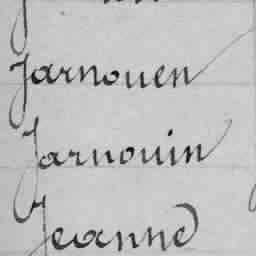 Jarnouen
Jarnouin
Jeanne